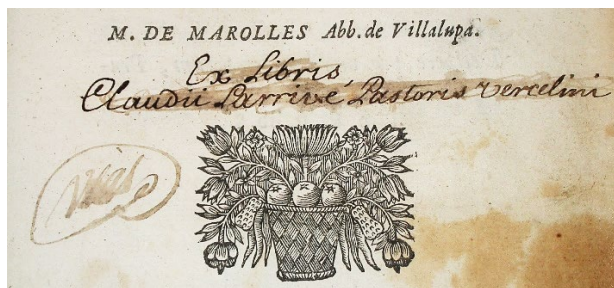 M. DE MAROLLES Abb. de Villalupa.
Ex Libris,
Claudii Larrivé Pastoris Vercelini